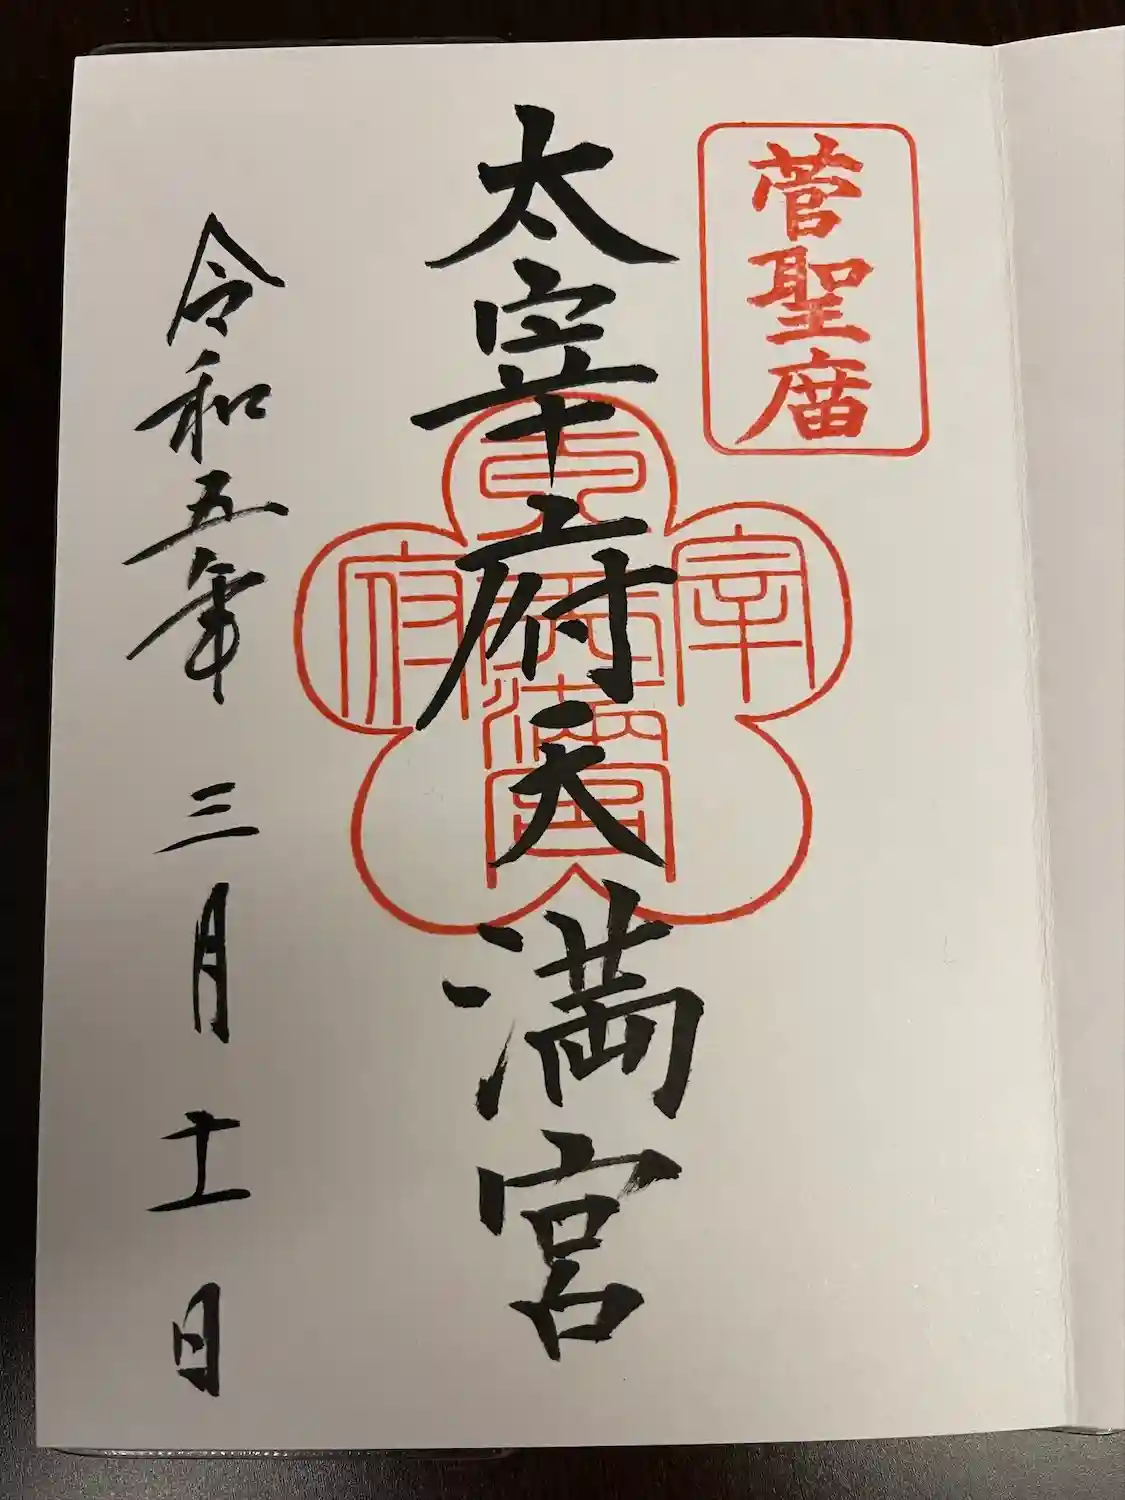 菅聖庿
太宰府天満宮
太宰府
天満宮
令和五年三月十一日